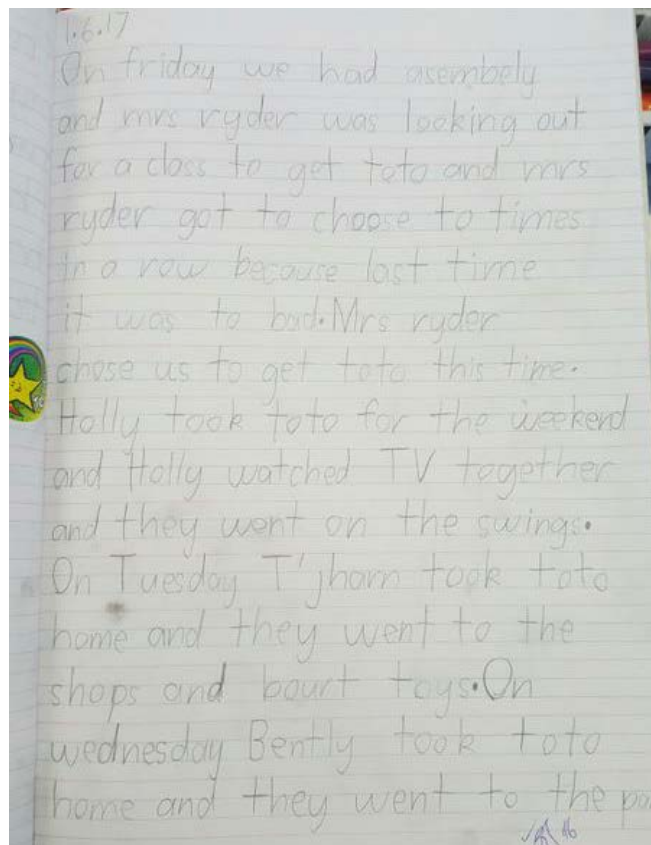 1.6.17
On friday we had asembely
and mrs ryder was looking out
for a class to get toto and mrs
ryder got to choose to times
in a row because last time
it was to bad. Mrs ryder
chose us to get toto this time.
Holly took toto for the weekend
and Holly watched TV together
and they went on the swings.
On Tuesday T'jharn took toto
home and they went to the
shops and bourt toys. On
wednesday Bently took toto
home and they went to the